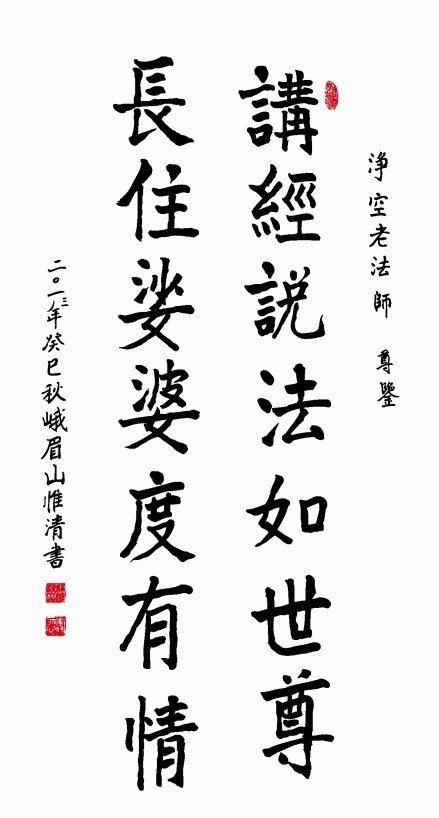 淨空老法師 尊鑒
講經説法如世尊
長住娑婆度有情
二〇一三年癸巳秋峨眉山惟清書